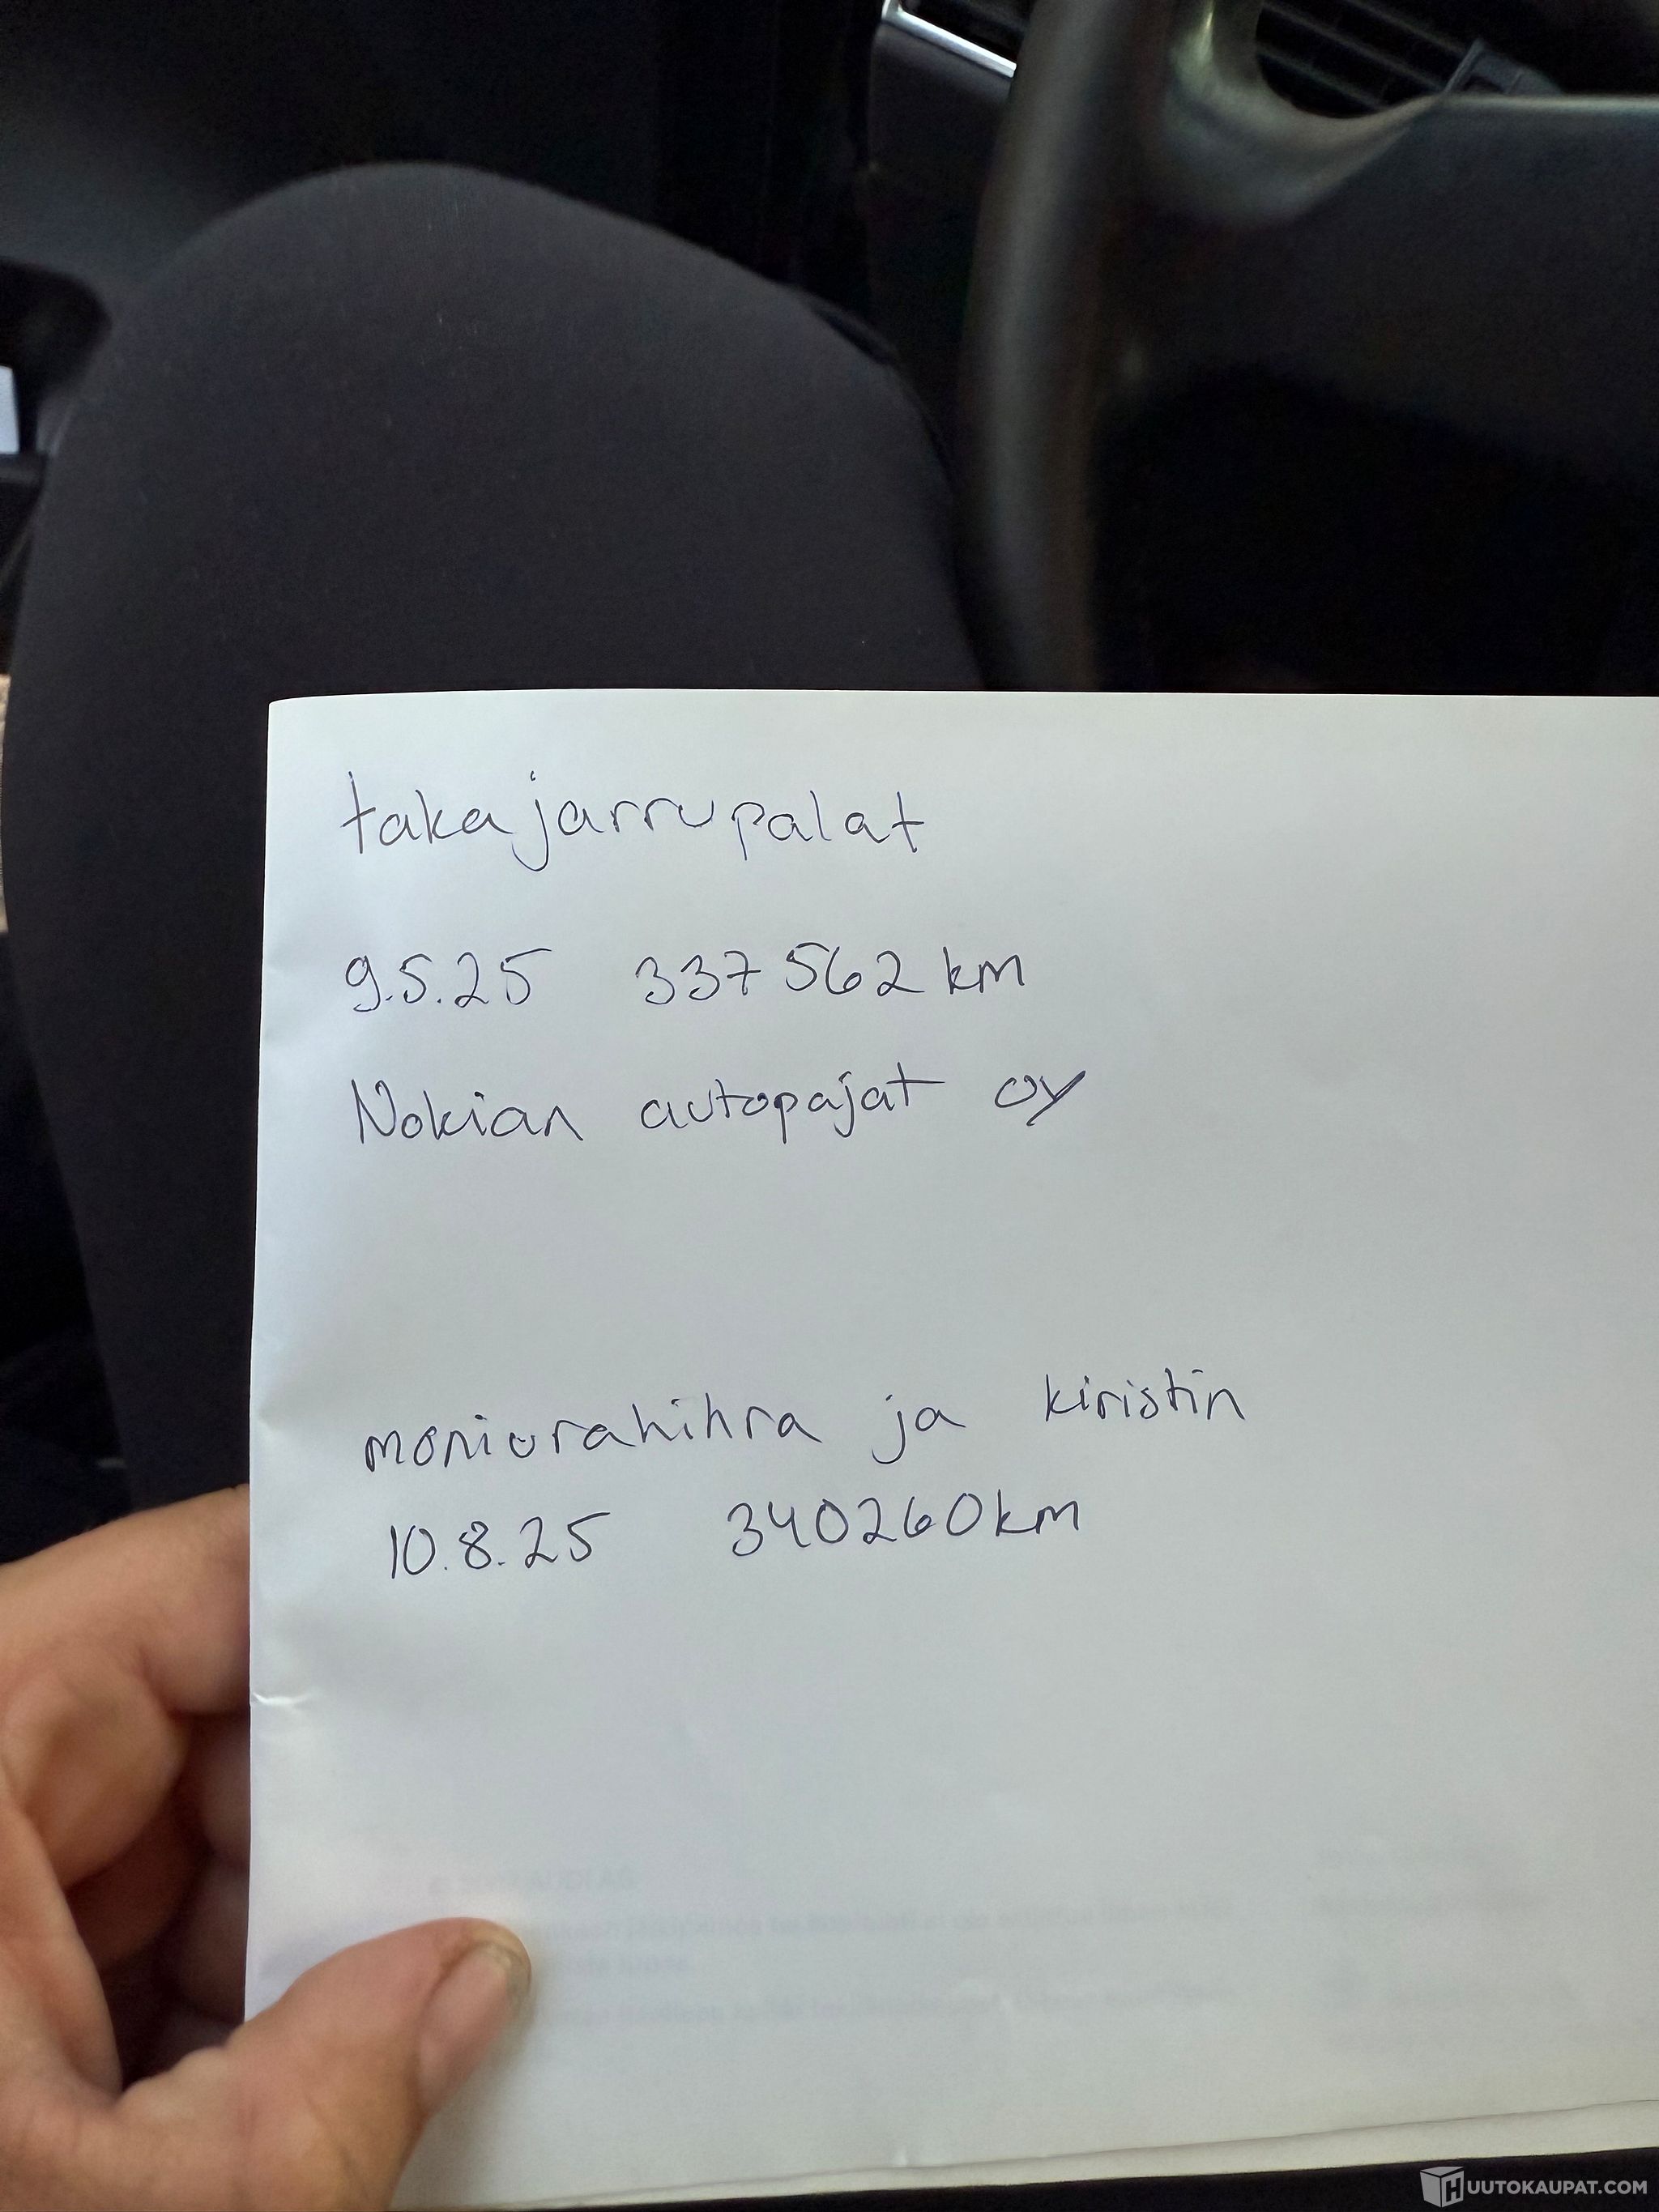 takajarrupalat
9.5.25 337 562 km
Nokian autopajat oy
moniurahihra ja kiristin
10.8.25 340260km
HUUTOKAUPAT.COM